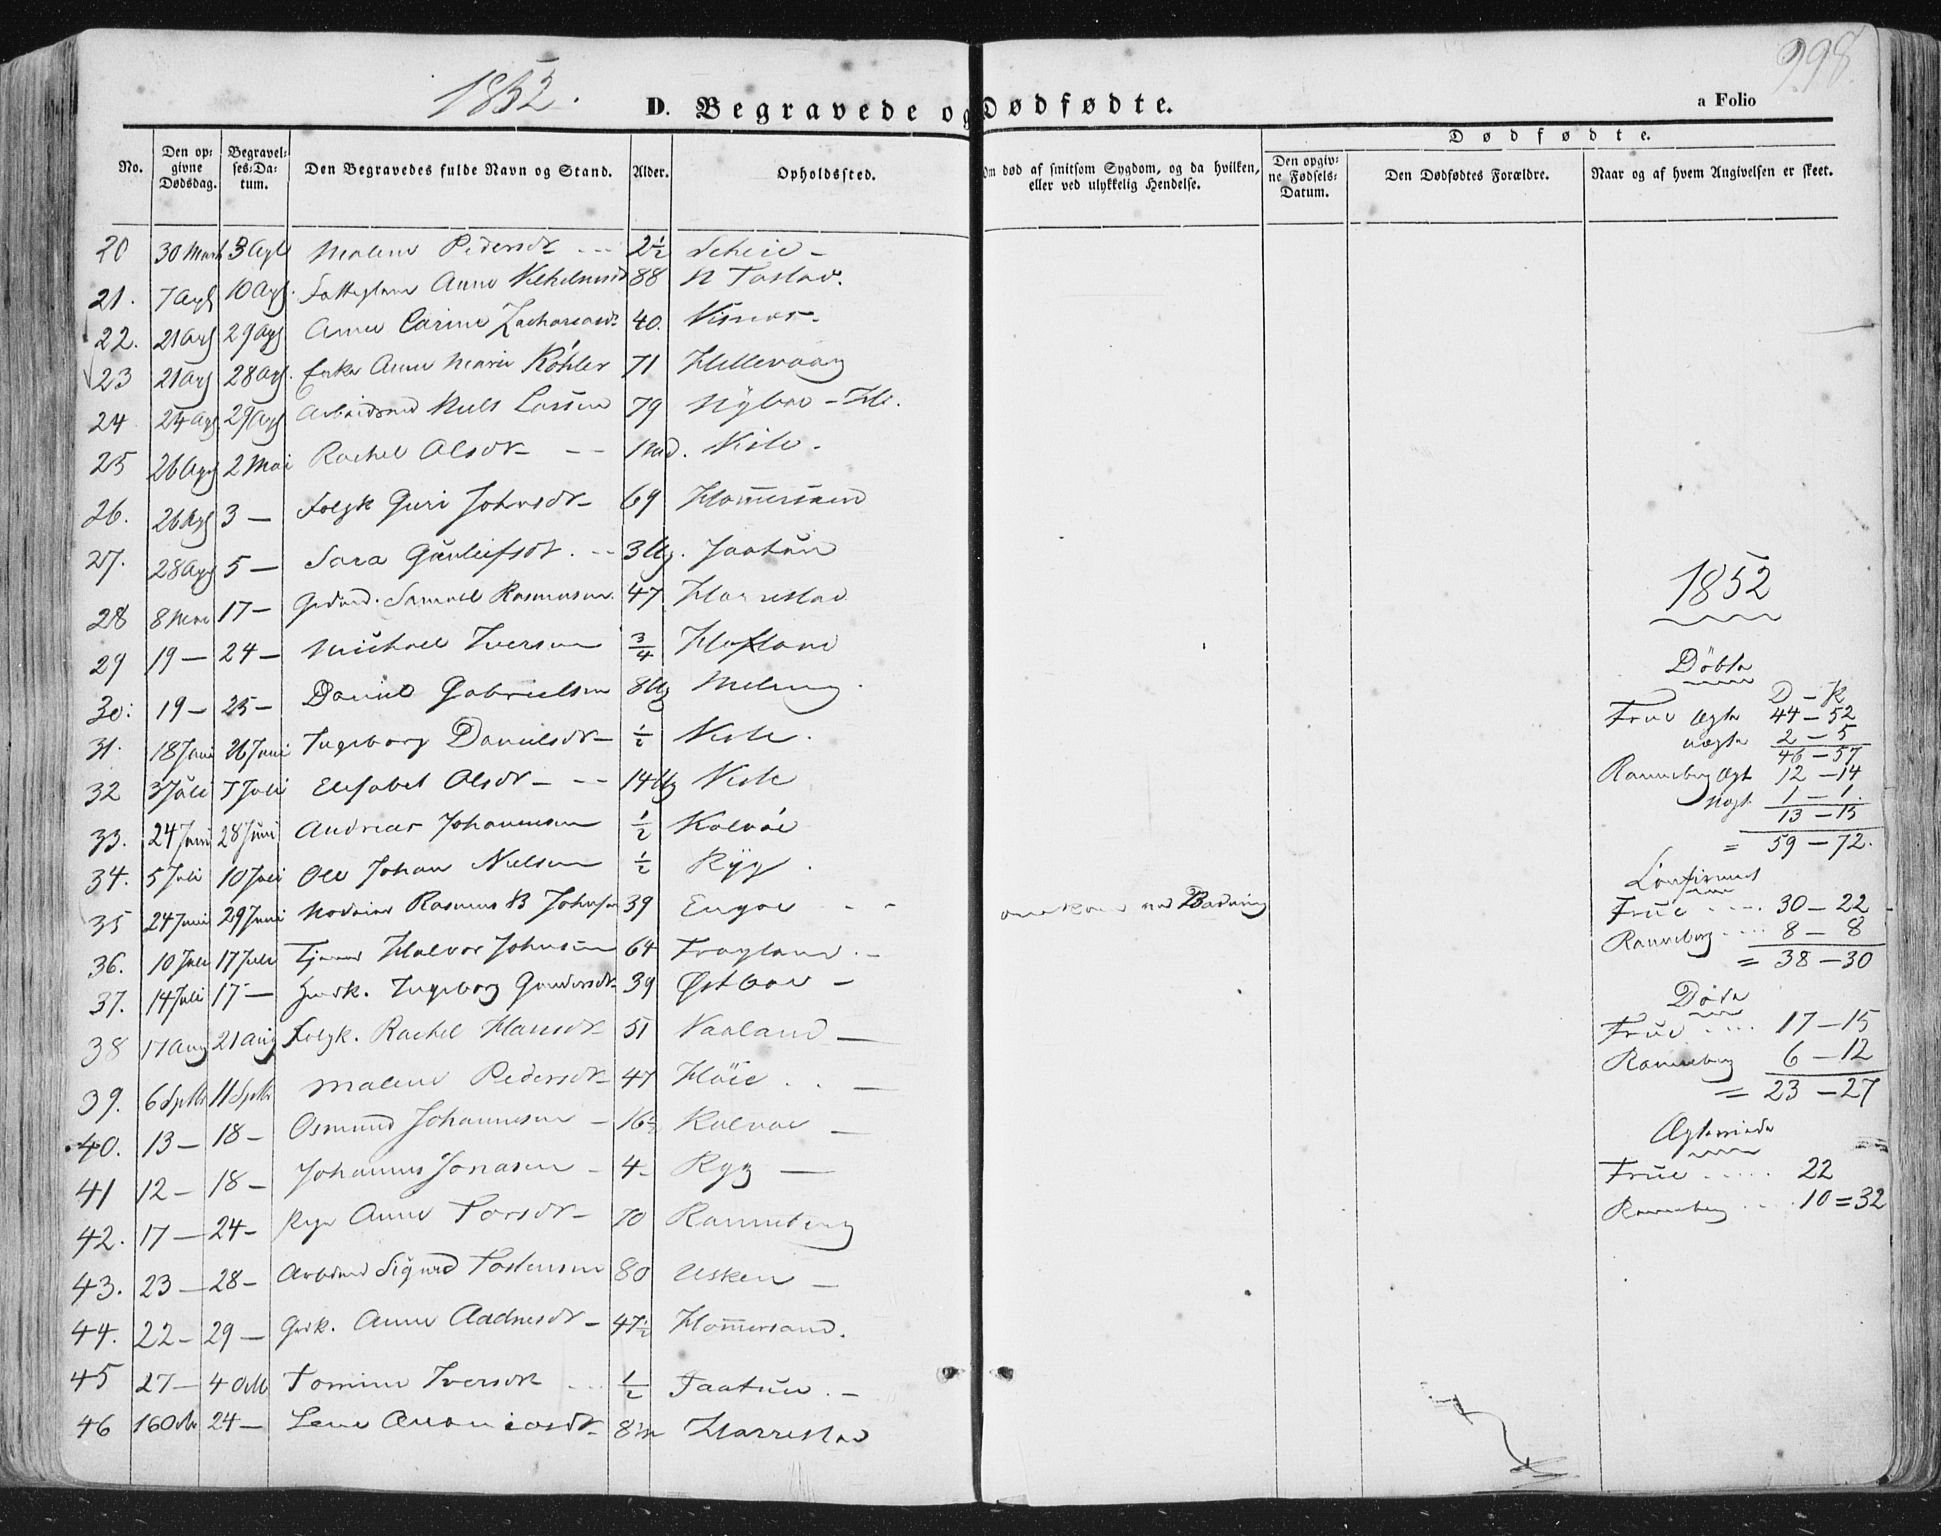 1852.
D. Begravede og Dødfødte.
a Folio
398.
No.
Den opgivne Dødsdag.
Begravelses-Datum.
Den Begravedes fulde Navn og Stand.
Alder.
Opholdssted.
Om død af smitsom Sygdom, og da hvilken, eller ved ulykkelig Hendelse.
Dødfødte.
Den opgivne Fødsels-Datum.
Den Dødfødtes Forældre.
Naar og af hvem Angivelsen er skeet.
20 30 Marts 3 Apl Malene Pedersdr 2½ Scheie
21. 7 Apl 10 Apl. Anne 88 N Tastad.
22. 21 Apl 29 Apl Anne Carine Zachariasdr 40. Visnes.
23 21 Apl 28 Apl. Enke Anne Marie Köhler 71 Hillevaag
24 24 Apl 29 Apl Arbeidsmd Niels Larsen 79
25 26 Apl 2 Mai Rachel Olsdr 1 Md.
26. 26 Apl 3 — Folgk Guri Johnsdr 69 Hommersand
27. 28 Apl 5 — Sara Gunleifsdr. 3 Ug. Jaatun
28 8 Mai 17 — Grdmd. Samuel Rasmusen 47 Harrestad
29 19 — 24 — Michael Iversen ¾
30. 19 — 25 — Daniel Gabrielsen 8 Ug Meling.
31. 18 Juni 26 Juni Ingeborg Danielsdr ½
32 3 Juli 7 Juli Elisabet Olsdr 14 Ug
33. 24 Juni 28 Juni Andreas Johannesen ½ Kalvöe
34. 5 Juli 10 Juli Ole Johan Nielsen ½ Ryg.
35 24 Juni 29 Juni Rasmus B Johnsen 39 Engøe omkom ved Badning
36. 10 Juli 17 Juli Halvor Johnsen 64 Frøyland.
37. 14 Juli 17 — Husk. Ingeborg Gundersdr 39 Østbøe
38 17 Aug 21 Aug Folgk. Rachel Hansdr 51 Vaaland
39. 6 Septbr 11 Septbr Malene Pedersdr 47 Höie
40. 13 — 18 — Osmund Johannesen 16½ Kalvøe
41 12 — 18 — Johannes Jonasen 4 Ryg
42. 17 — 24 — Anne Torsdr 70 Ranneberg
43. 23 — 28 — Arbdmd Sigurd Tostensen 80 Usken
44. 22 — 29 — Anne Aadnesdr 47½ Hommersand.
45 27 — 4 Octb Tomine Iversdr ½ Jaatun.
46 16 Octb 24 — Lene Ananiasdr 8½ Harrestad
1852
Döbte
D – K
Frue Ægte 44 – 52
uægte 2 – 5
46 – 57
Ranneberg Ægt 12 – 14
Uægt 1 – 1
13 – 15
= 59 – 72.
Confirmert
Frue .... 30 – 22
Ranneberg .... 8 – 8
= 38 – 30
Döde
Frue .... 17 – 15
Ranneberg 6 – 12
= 23 – 27
Ægteviede
Frue ..... 22
Ranneberg .... 10 = 32